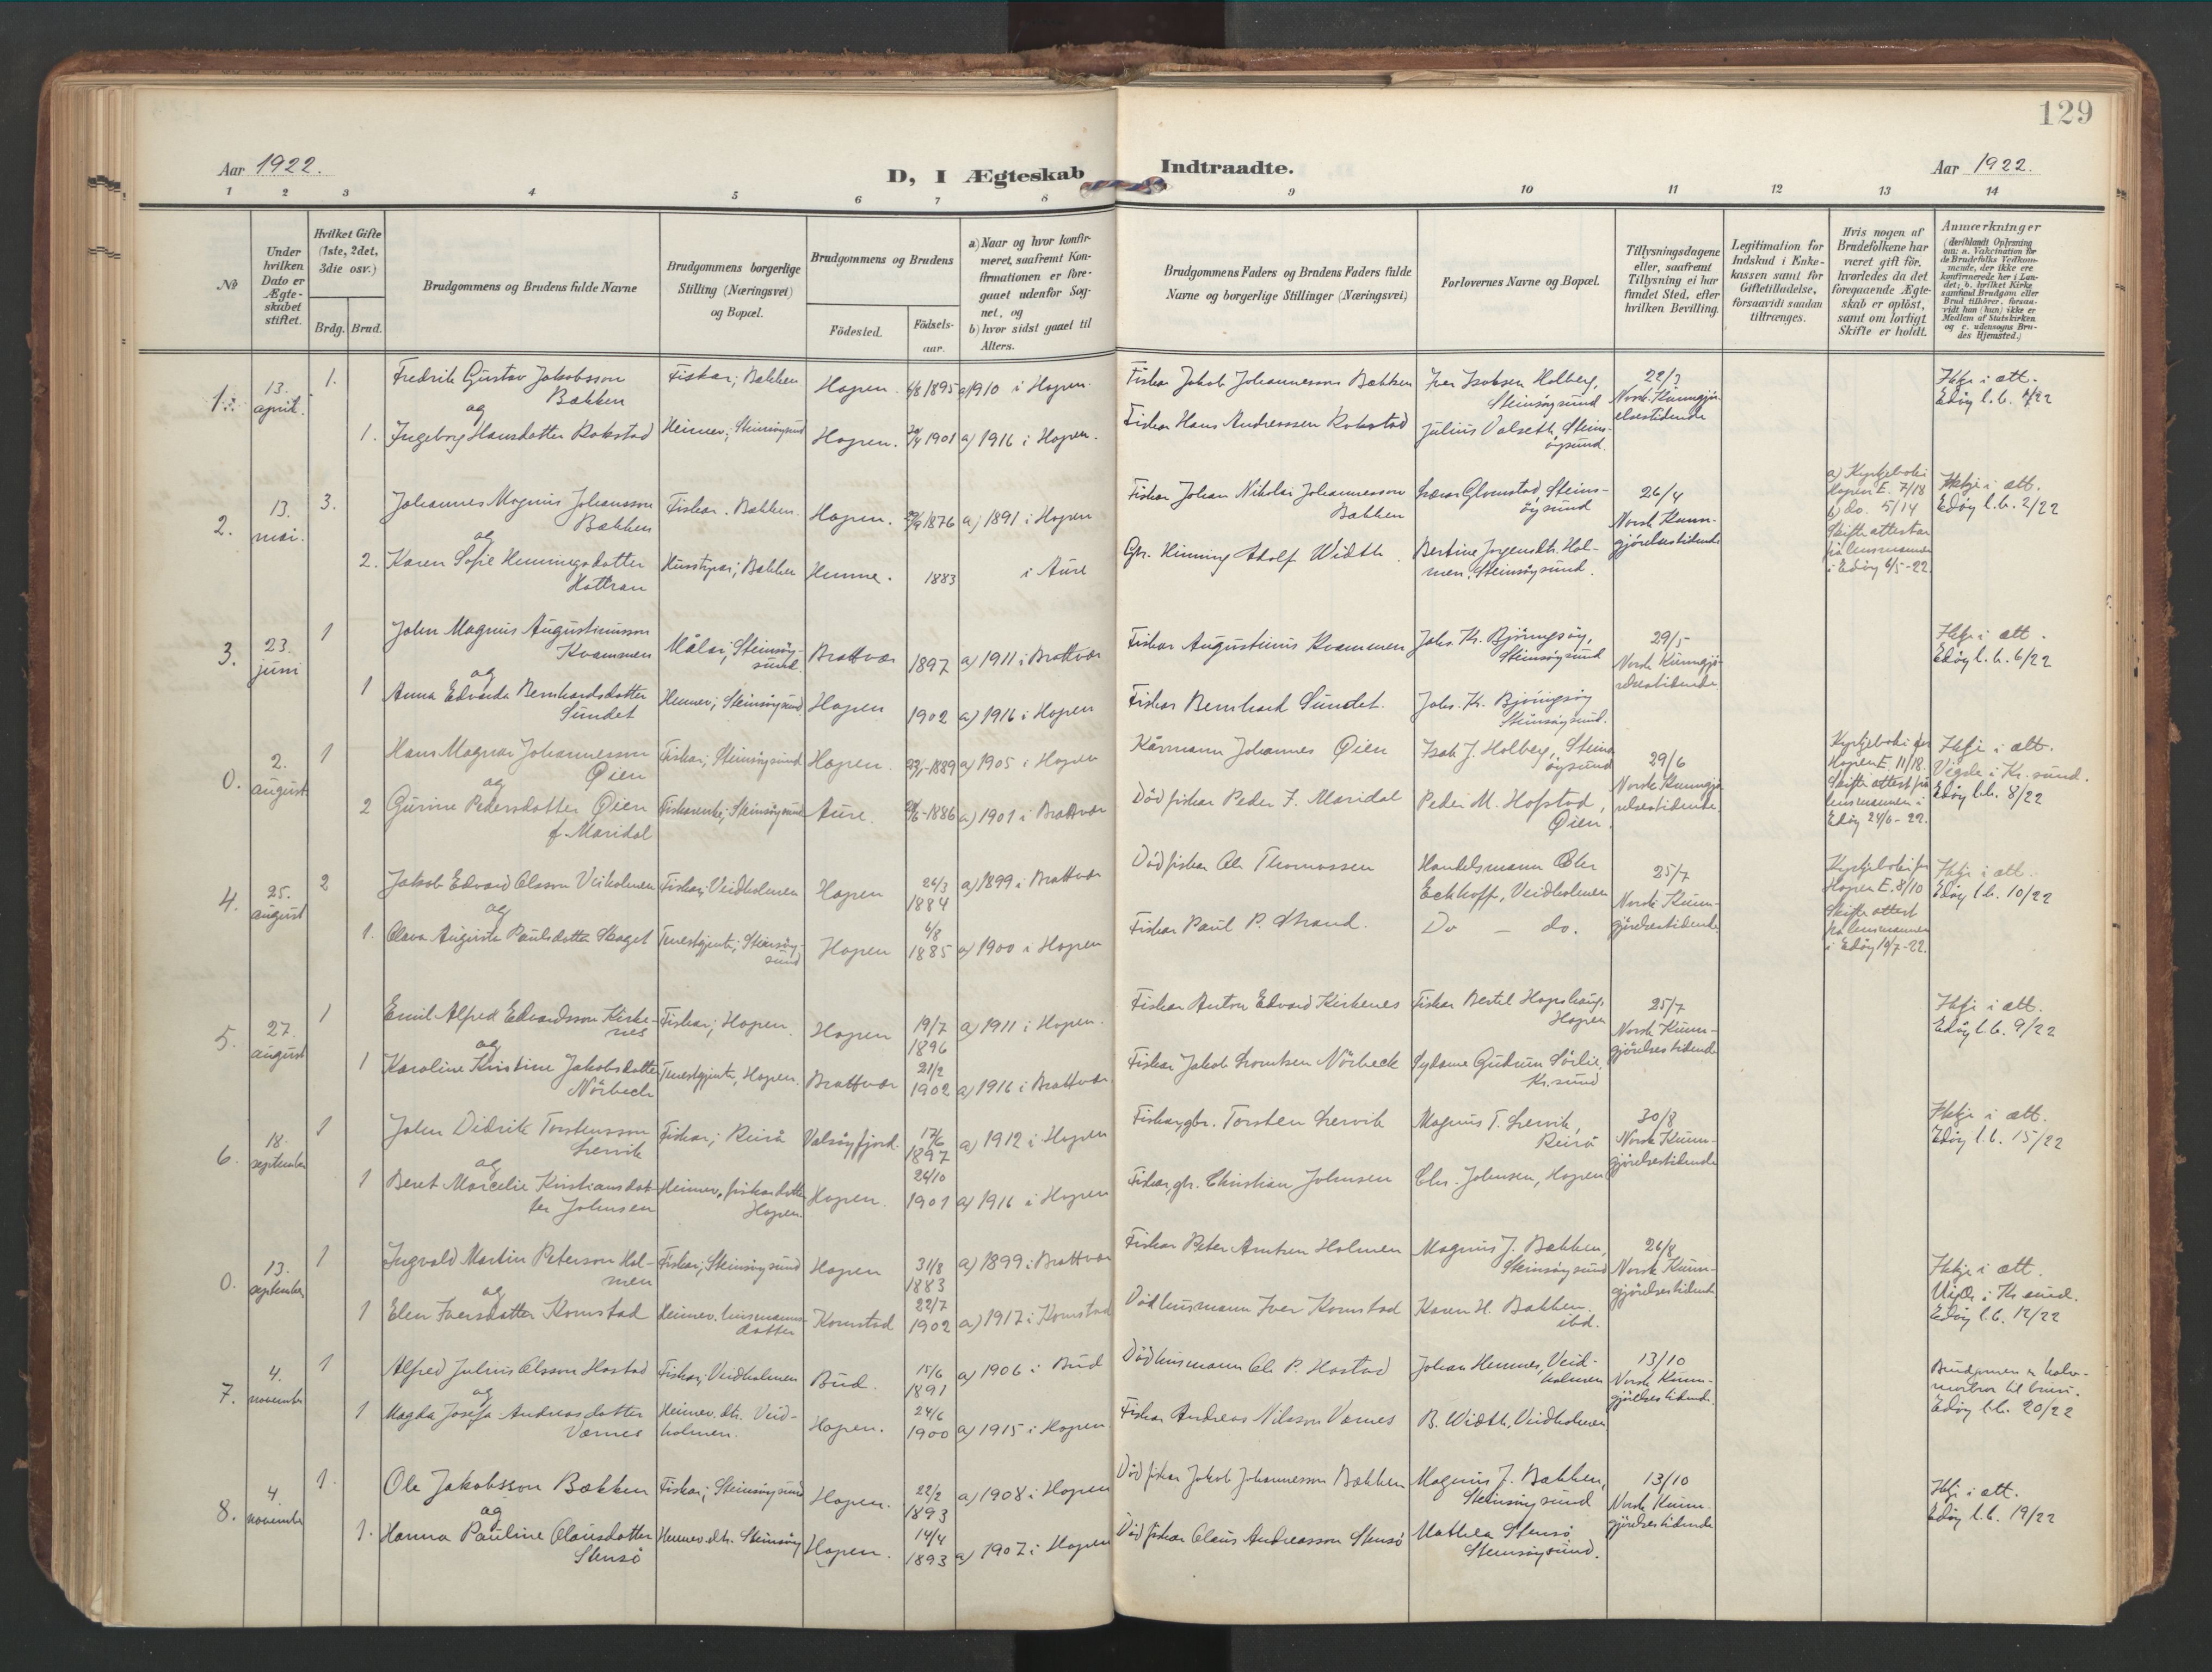 129
Aar 1922.
D, I Ægteskab Indtraadte.
Aar 1922.
1 2 3 4 5 6 7 8 9 10 11 12 13 14
No
Under hvilken Dato er Ægteskabet stiftet.
Hvilket Gifte (1ste, 2det, 3die osv.)
Brdg. Brud.
Brudgommens og Brudens fulde Navne
Brudgommens borgerlige Stilling (Næringsvei) og Bopæl.
Brudgommens og Brudens
Födested. Födsels-aar.
a) Naar og hvor konfirmeret, saafremt Konfirmationen er foregaaet udenfor Sognet, og
b) hvor sidst gaaet til Alters.
Brudgommens Faders og Brudens Faders fulde Navne og borgerlige Stillinger (Næringsvei)
Forlovernes Navne og Bopæl.
Tillysningsdagene eller, saafremt Tillysning ei har fundet Sted, efter hvilken Bevilling.
Legitimation for Indskud i Enkekassen samt for Giftetilladelse, forsaavidt saadan tiltrænges.
Hvis nogen af Brudefolkene har været gift för, hvorledes da det foregaaende Ægteskab er oplöst, samt om lovligt Skifte er holdt.
Anmærkninger
(deriblandt Oplysning om: a. Vakcination for de Brudefolks Vedkommende, der ikke ere konfirmerede her i Landet; b. hvilket Kirkesamfund Brudgom eller Brud tilhörer, forsaavidt han (hun) ikke er Medlem af Statskirken og c. udensogns Brudes Hjemsted.)
1. 13. april. 1. Fredrik Gustav Jakobsson Bækken
Fiskar; Bækken. Hopen. 6/8 1895 a) 1910 i Hopen.
Fiskar Jakob Johannessons Bækken
Iver Isaksen Holberg, Steinsöysund
22/3 Norsk Kunngjörelsestidende
Ikkje i ætt. Edöy l.b. 1/22
og
1. Ingeborg Hansdotter Rokstad
Heimev; Steinsöysund Hopen. 20/4 1901 a) 1916 i Hopen.
Fiskar Hans Andreassen Rokstad
Julius Valseth, Steinsöysund.
2. 13. mai. 3. Johannes Magnus Johansson Bækken
Fiskar. Bækken. Hopen. 29/9 1876 a) 1891 i Hopen
Fiskar Johan Nikolai Johannesson Bækken
Glomstad, Steinsöysund
26/4 Norsk Kunngjörelsestidende
a) Kyrkjeboki Hopen E. 7/18 b) do. 5/14 Skifteattestar frå lensmannen i Edöy 6/5-22.
Ikkje i ætt. Edöy l.b. 2/22
og
2. Karen Sofie Hemmingsdotter Hattran
Hustyrar; Bækken Hemne. 1883 i Aure
Gbr. Hemming Adolf Width.
Bertine Jörgensdtr. Holmen. Steinsöysund.
3. 23. juni 1 John Magnus Augustinusson Kvammen
Målar; Steinsöysund. Brattvær 1897 a) 1911 i Brattvær
Fiskar Augustinus Kvammen
Johs. Kr. Björingsöy, Steinsöysund
29/5 Norsk Kunngjörelsestidende
Ikkje i ætt. Edöy l.b. 6/22
og
1 Anna Edvarda Bernhardsdotter Sundet
Heimev; Steinsöysund Hopen 1902 a) 1916 i Hopen
Fiskar Bernhard Sundet.
Johs. Kr. Björingsöy Steinsöysund.
0. 2. august 1 Hans Magnar Johannesson Öien
Fiskar; Steinsöysund Hopen. 1889 a) 1905 i Hopen
Kårmann Johannes Öien
Isak J. Holberg, Steinsöysund
29/6 Norsk Kunngjörelsestidende.
Kyrkjeboki for Hopen E. 11/18. Skifteattest frå lensmannen i Edöy 24/6-22.
Ikkje i ætt. Vigde i Kr.sund. Edöy l.b. 8/22
og
2 Gurine Pedersdotter Öien f. Maridal
Fiskarenke; Steinsöysund Aure. 1886 a) 1901 i Brattvær
Död fiskar Peder J. Maridal
Peder M. Hofstad, Öien.
4. 25. august 2 Jakob Edvard Olsson Veiholmen
Fiskar; Veidholmen Hopen 26/3 1884 a) 1899 i Brattvær
Död fiskar Ole Thomassen
Handelsmann Eckhoff, Veidholmen
25/7 Norsk Kunngjörelsestidende
Kyrkjeboki for Hopen E. 8/10 Skifteattest frå lensmannen i Edöy 19/7-22.
Ikkje i ætt. Edöy l.b. 10/22
og
1. Olava Auguste Paulsdotter Skaget
Tenestgjenta; Steinsöysund Hopen 6/8 1885 a) 1900 i Hopen
Fiskar Paul P. Strand.
Do - do.
5. 27. august 1 Emil Alfred Edvardsson Kirkenes
Fiskar; Hopen. Hopen 19/7 1896 a) 1911 i Hopen.
Fiskar Anton Edvard Kirkenes
Fiskar Bertel Hopshaug, Hopen
25/7 Norsk Kunngjörelsestidende
Ikkje i ætt. Edöy l.b. 9/22
og
1 Karoline Kristine Jakobsdotter Nörbech
Tenestgjenta, Hopen. Brattvær 21/2 1902 a) 1916 i Brattvær.
Fiskar Jakob Lorentsen Nörbeck
Sydame Gudrun Sörlie, Kr.sund
6. 18. september 1 John Didrik Torstensson Lervik
Fiskar; Reirå Valsöyfjord. 17/6 1897 a) 1912 i Hopen
Fiskar, gbr. Torsten Lervik
Magnus T. Lervik, Reirå
30/8 Norsk Kunngjörelsestidende
Ikkje i ætt. Edöy l.b. 15/22
og
1 Beret Marcelie Kristiansdotter Johnsen
Heimev. fiskardotter Hopen. Hopen. 26/10 1901 a) 1916 i Hopen
Fiskar, gbr. Christian Johnsen
Chr. Johnsen, Hopen
0. 13. september 1 Ingvald Martin Peterson Holmen
Fiskar; Steinsöysund Hopen 31/8 1883 a) 1899 i Brattvær
Fiskar Peter Arntsen Holmen
Magnus J. Bækken, Steinsöysund
26/8 Norsk Kunngjörelsestidende
Ikkje i ætt. Vigde i Kr.sund. Edöy l.b. 12/22
og
1 Elen Iversdotter Kornstad
Heimev. husmannsdotter Kornstad 22/7 1902 a) 1917 i Kornstad
Död husmann Iver Kornstad
Karen H. Bækken. ibd.
7. 4. november 1 Alfred Julius Olsson Hostad
Fiskar; Veidholmen Bud. 15/6 1891 a) 1906 i Bud
Död husmann Ole P. Hostad
Johan Hemnes, Veidholmen
13/10 Norsk Kunngjörelsestidende.
Brudgomen er halvmorbror til bruri. Edöy l.b. 20/22
og
1 Magda Josefa Andreasdotter Værnes
Heimev. dtr. Veidholmen. Hopen. 24/6 1900 a) 1915 i Hopen
Fiskar Andreas Nilsson Værnes
B. Width, Veidholmen
8. 4. november 1. Ole Jakobsson Bækken
Fiskar; Steinsöysund Hopen. 22/2 1893 a) 1908 i Hopen
Död fiskar Jakob Johannesson Bækken
Magnus J. Bækken, Steinsöysund
13/10 Norsk Kunngjörelsestidende
Ikkje i ætt. Edöy l.b. 19/22
og
1. Hanna Pauline Olausdotter Stensö
Heimev. dtr. Steinsöy Hopen. 14/4 1893 a) 1907 i Hopen
Död fiskar Olaus Andreasson Stensö
Mathea Stensö Steinsöysund.